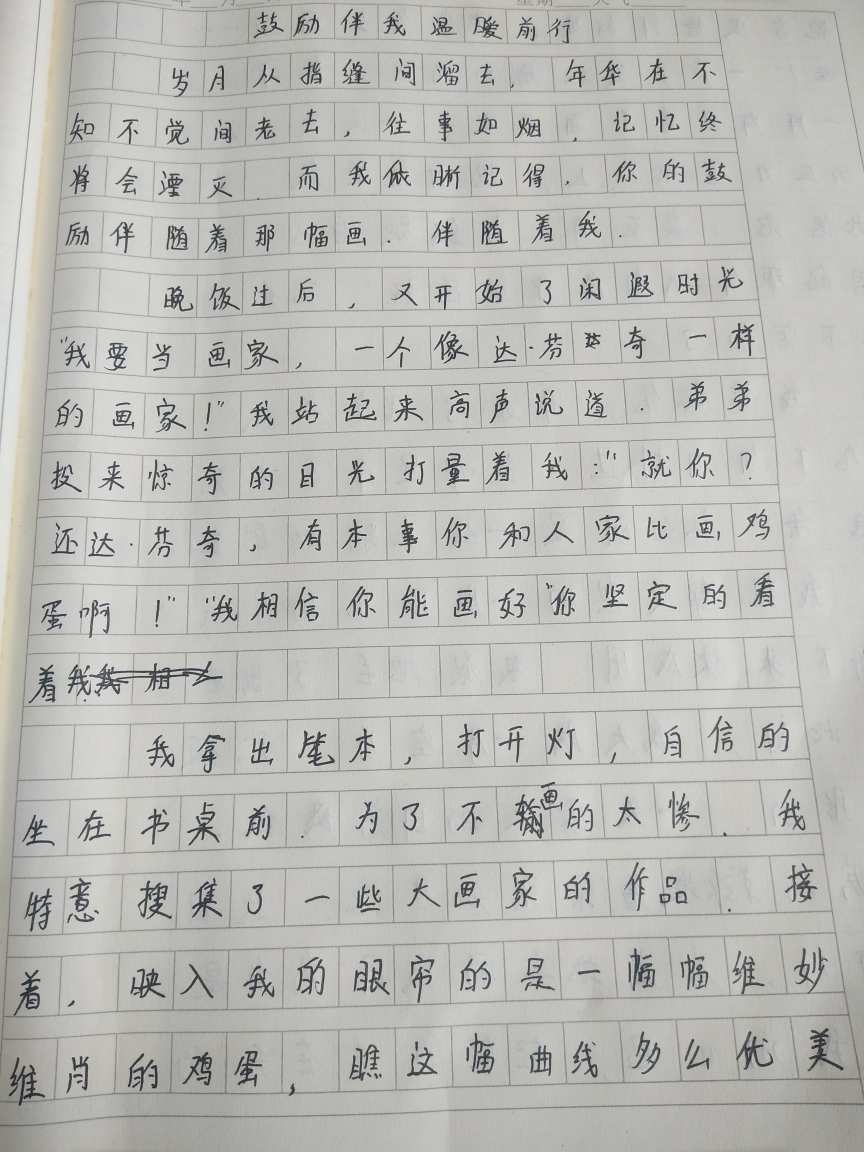 鼓励伴我温暖前行
岁月从指缝间溜去，年华在不
知不觉间老去，往事如烟，记忆终
将会湮灭．而我依晰记得．你的鼓
励伴随着那幅画．伴随着我．
晚饭过后，又开始了闲遐时光
“我要当画家，一个像达·芬奇一样
的画家！”我站起来高声说道．弟弟
投来惊奇的目光打量着我：“就你？
还达·芬奇，有本事你和人家比画鸡
蛋啊！”“我相信你能画好”你坚定的看
着我
我拿出笔本，打开灯，自信的
坐在书桌前．为了不画的太惨．我
特意搜集了一些大画家的作品．接
着，映入我的眼帘的是一幅幅维妙
维肖的鸡蛋，瞧这幅曲线多么优美